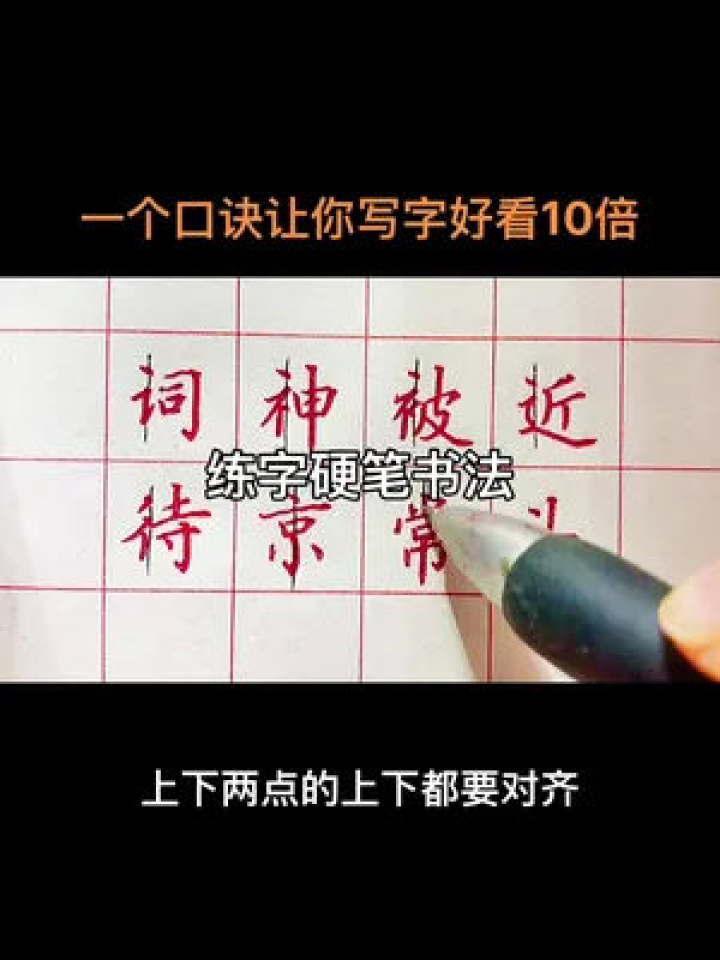 一个口诀让你写字好看10倍
词神被近
练字硬笔书法
待京常
上下两点的上下都要对齐